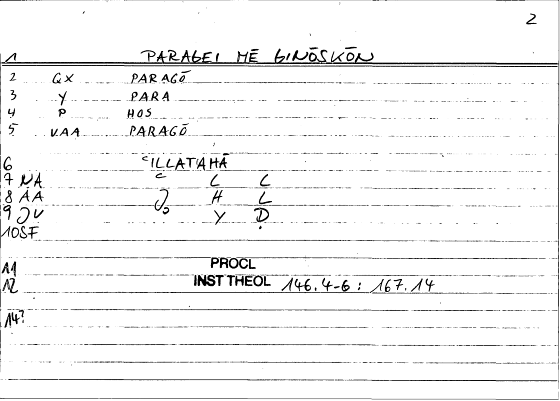 2
1 PARAGEI MĒ GINŌSKŌN
2 QX PARAGŌ
3 Y PARA
4 P HOS
5 VAA PARAGŌ
6 ʿILLATAHĀ
7 NA C L L
8 AA H L
9 JV Y Ḍ
10SF
11 PROCL
12 INST THEOL 146.4-6 : 167.14
14?